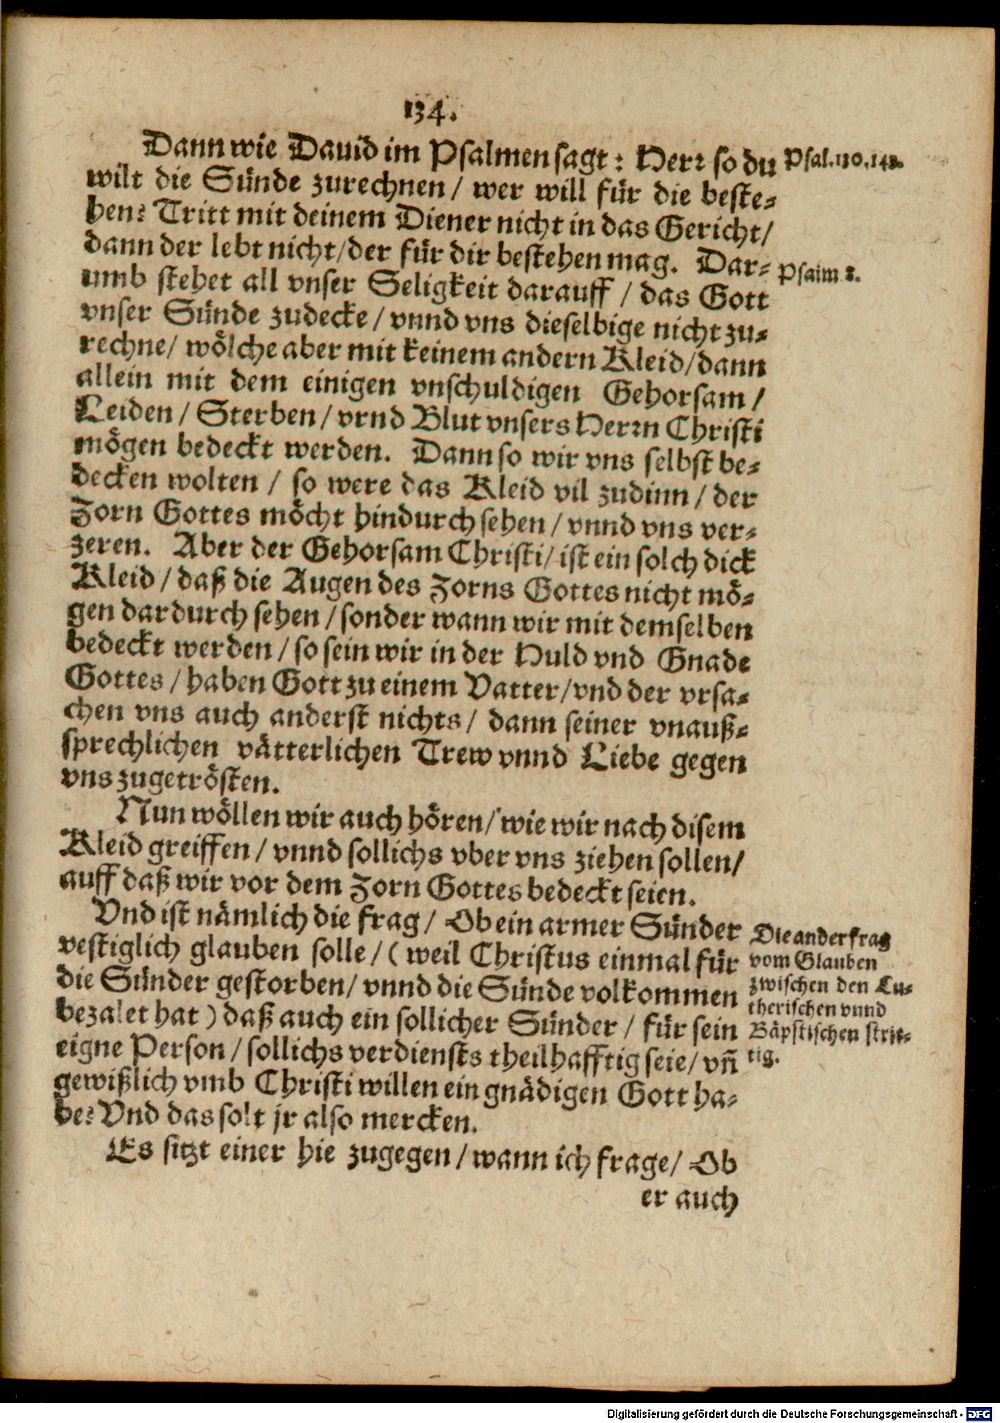 134.
Dann wie Dauid im Psalmen sagt: Herr so du
Psal. 130. 143.
wilt die Sünde zurechnen / wer will für die beste-
hen: Tritt mit deinem Diener nicht in das Gericht/
dann der lebt nicht/der für dir bestehen mag. Dar-
Psalm
umb stehet all vnser Seligkeit darauff / das Gott
vnser Sünde zudecke / vnnd vns dieselbige nicht zu-
rechne/ wölche aber mit keinem andern Kleid/dann
allein mit dem einigen vnschuldigen Gehorsam /
Leiden / Sterben / vnnd Blut vnsers Herrn Christi
mögen bedeckt werden. Dann so wir vns selbst be-
decken wolten / so were das Kleid vil zudinn / der
Zorn Gottes möcht hindurch sehen / vnnd vns ver-
zeren. Aber der Gehorsam Christi/ ist ein solch dick
Kleid / daß die Augen des Zorns Gottes nicht mö-
gen dardurch sehen / sonder wann wir mit demselben
bedeckt werden / so sein wir in der Huld vnd Gnade
Gottes / haben Gott zu einem Vatter/vnd der vrsa-
chen vns auch anderst nichts/ dann seiner vnauß-
sprechlichen vätterlichen Trew vnnd Liebe gegen
vns zugetrösten.
Nun wöllen wir auch hören/ wie wir nach disem
Kleid greiffen / vnnd sollichs vber vns ziehen sollen/
auff daß wir vor dem Zorn Gottes bedeckt seien.
Vnd ist nämlich die frag / Ob ein armer Sünder
vestiglich glauben solle / ( weil Christus einmal für
die Sünder gestorben/ vnnd die Sünde volkommen
bezalet hat ) daß auch ein sollicher Sünder / für sein
eigne Person / sollichs verdiensts theilhafftig seie/ vñ
gewißlich vmb Christi willen ein gnädigen Gott ha-
be: Vnd das solt jr also mercken.
Die ander frag
vom Glauben
zwischen den Lu-
therischen vnnd
Bäpstischen strit-
tig.
Es sitzt einer hie zugegen / wann ich frage/ Ob
er auch
Digitalisierung gefördert durch die Deutsche Forschungsgemeinschaft - DFG